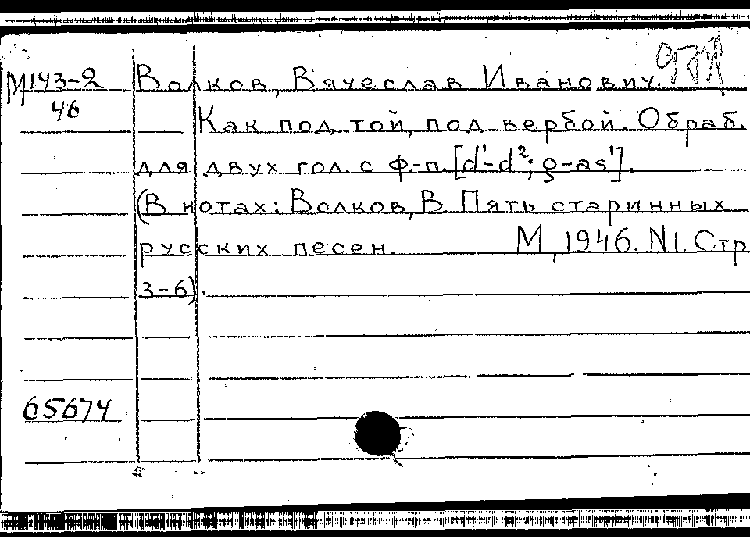 М143-2 Волков, Вячеслав Иванович.
46
Как под той, под вербой. Обраб.
для двух гол. с ф-п. [d¹-d²; g-as¹].
(В нотах: Волков, В. Пять старинных
русских песен. М., 1946. N1. Стр
3-6).
65674